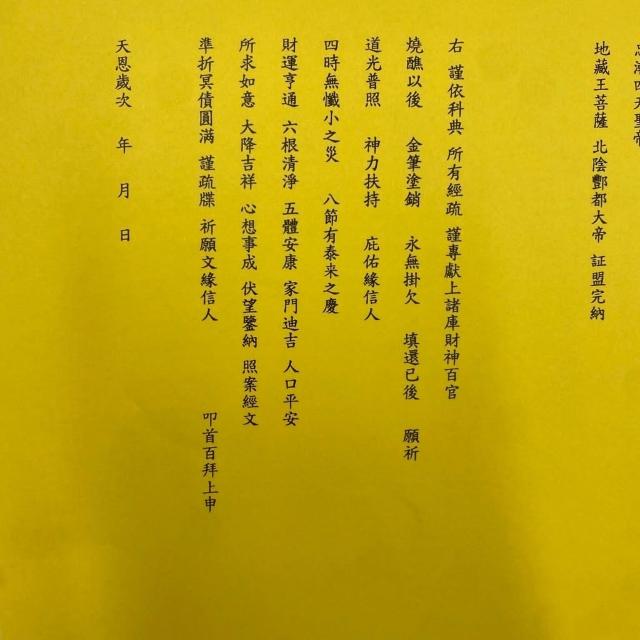 四天聖帝
地藏王菩薩 北陰酆都大帝 証盟完納
右 謹依科典 所有經疏 謹專獻上諸庫財神百官
燒醮以後 金筆塗銷 永無掛欠 填還已後 願祈
道光普照 神力扶持 庇佑緣信人
四時無懺小之災 八節有泰来之慶
財運亨通 六根清淨 五體安康 家門迪吉 人口平安
所求如意 大降吉祥 心想事成 伏望鑒納 照案經文
準折冥債圓滿 謹疏牒 祈願文緣信人 叩首百拜上申
天恩歲次 年 月 日